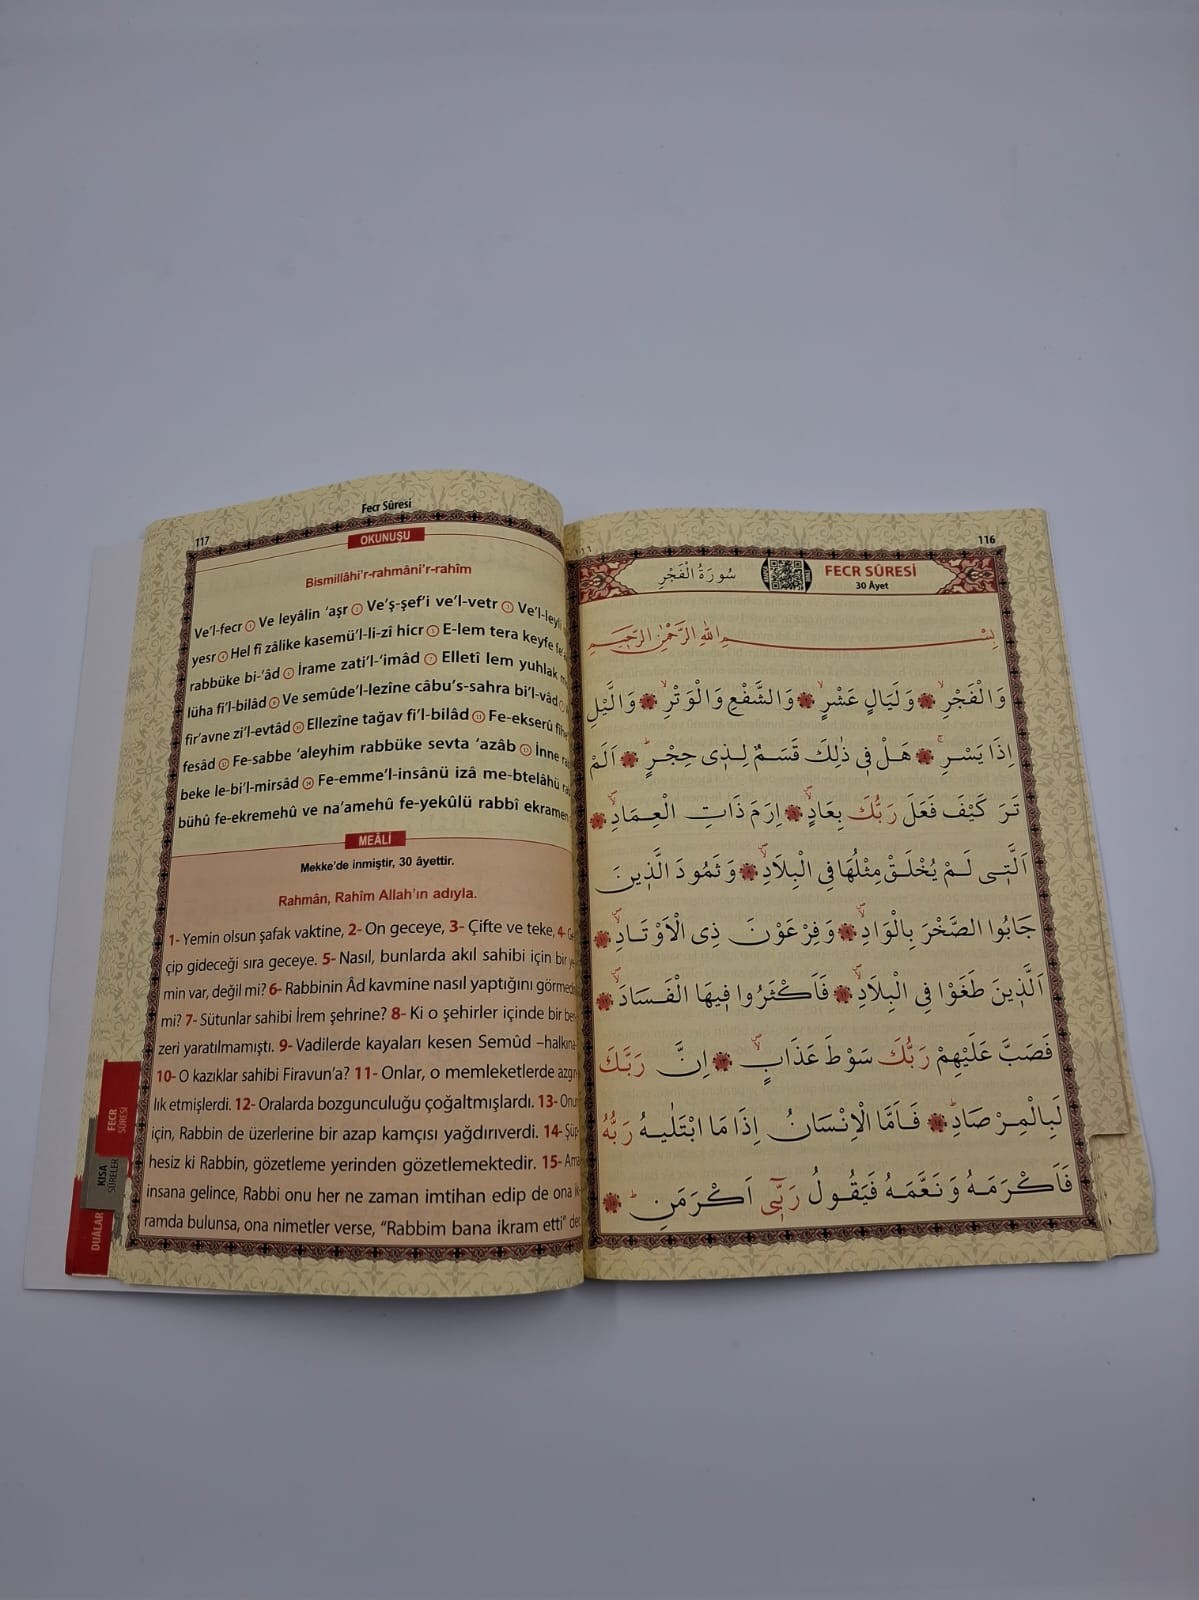 Fecr Sûresi
117
OKUNUŞU
Bismillâhi'r-rahmâni'r-rahîm
Ve'l-fecr 1 Ve leyâlin 'aşr 2 Ve'ş-şef'i ve'l-vetr 3 Ve'l-leyli
yesr 4 Hel fî zâlike kasemü'l-li-zî hicr 5 E-lem tera keyfe
rabbüke bi-'âd 6 İrame zati'l-'imâd 7 Elletî lem yuhlak
lüha fi'l-bilâd 8 Ve semûde'l-lezîne câbu's-sahra bi'l-vâd
fir'avne zi'l-evtâd 10 Ellezîne tağav fi'l-bilâd 11 Fe-ekserû
fesâd 12 Fe-sabbe 'aleyhim rabbüke sevta 'azâb 13 İnne
beke le-bi'l-mirsâd 14 Fe-emme'l-insânü izâ me-btelâhü
bühû fe-ekremehû ve na'amehû fe-yekûlü rabbî ekramen
MEÂLİ
Mekke'de inmiştir, 30 âyettir.
Rahmân, Rahîm Allah'ın adıyla.
1- Yemin olsun şafak vaktine, 2- On geceye, 3- Çifte ve teke, 4-
çip gideceği sıra geceye. 5- Nasıl, bunlarda akıl sahibi için bir
min var, değil mi? 6- Rabbinin Âd kavmine nasıl yaptığını
mi? 7- Sütunlar sahibi İrem şehrine? 8- Ki o şehirler içinde bir
zeri yaratılmamıştı. 9- Vadilerde kayaları kesen Semûd –halkına-
10- O kazıklar sahibi Firavun'a? 11- Onlar, o memleketlerde
lık etmişlerdi. 12- Oralarda bozgunculuğu çoğaltmışlardı. 13-
için, Rabbin de üzerlerine bir azap kamçısı yağdırıverdi. 14-
hesiz ki Rabbin, gözetleme yerinden gözetlemektedir. 15-
insana gelince, Rabbi onu her ne zaman imtihan edip de ona
ramda bulunsa, ona nimetler verse, "Rabbim bana ikram etti"
FECR
SÛRESİ
KISA
SÛRELER
DUÂLAR
116
سُورَةُ الْفَجْرِ
FECR SÛRESİ
30 Âyet
بِسْمِ اللهِ الرَّحْمٰنِ الرَّحِيمِ
وَالْفَجْرِۙ وَلَيَالٍ عَشْرٍۙ وَالشَّفْعِ وَالْوَتْرِۙ وَالَّيْلِ
اِذَا يَسْرِۚ هَلْ فٖي ذٰلِكَ قَسَمٌ لِذٖي حِجْرٍۜ اَلَمْ
تَرَ كَيْفَ فَعَلَ رَبُّكَ بِعَادٍۙ اِرَمَ ذَاتِ الْعِمَادِۙ
اَلَّتٖي لَمْ يُخْلَقْ مِثْلُهَا فِي الْبِلَادِۙ وَثَمُودَ الَّذٖينَ
جَابُوا الصَّخْرَ بِالْوَادِۙ وَفِرْعَوْنَ ذِي الْاَوْتَادِۙ
اَلَّذٖينَ طَغَوْا فِي الْبِلَادِۙ فَاَكْثَرُوا فٖيهَا الْفَسَادَۙ
فَصَبَّ عَلَيْهِمْ رَبُّكَ سَوْطَ عَذَابٍۙ اِنَّ رَبَّكَ
لَبِالْمِرْصَادِۜ فَاَمَّا الْاِنْسَانُ اِذَا مَا ابْتَلٰيهُ رَبُّهُ
فَاَكْرَمَهُ وَنَعَّمَهُ فَيَقُولُ رَبّٖي اَكْرَمَنِۜ